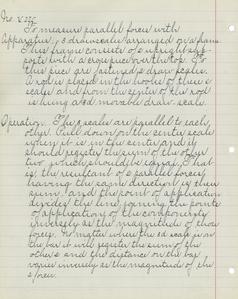 To measure parallel forces with
Apparatus, 3 drawscales arranged on a frame.
This frame consists of 2 upright sup-
ports with a cross piece over the top. To
this piece are fastened 2 draw scales.
A rod is placed in the hooks of these
scales and from the center of the rod
is hung a 3d movable draw scale.
Operation. These scales are parallel to each
other. Pull down on the center scale
when it is in the center and it
should register the sum of the other
two which should be equal. That
is, the resultant of 2 parallel forces
having the same direction is their
sum and the point of application
divides the line joining the points
of application of the components
inversely as the magnitude of those
forces. No matter where the 3d scale is on
the bar it will register the sum of the
others and the distance on the bar
varies inversely as the magnitude of the
forces.